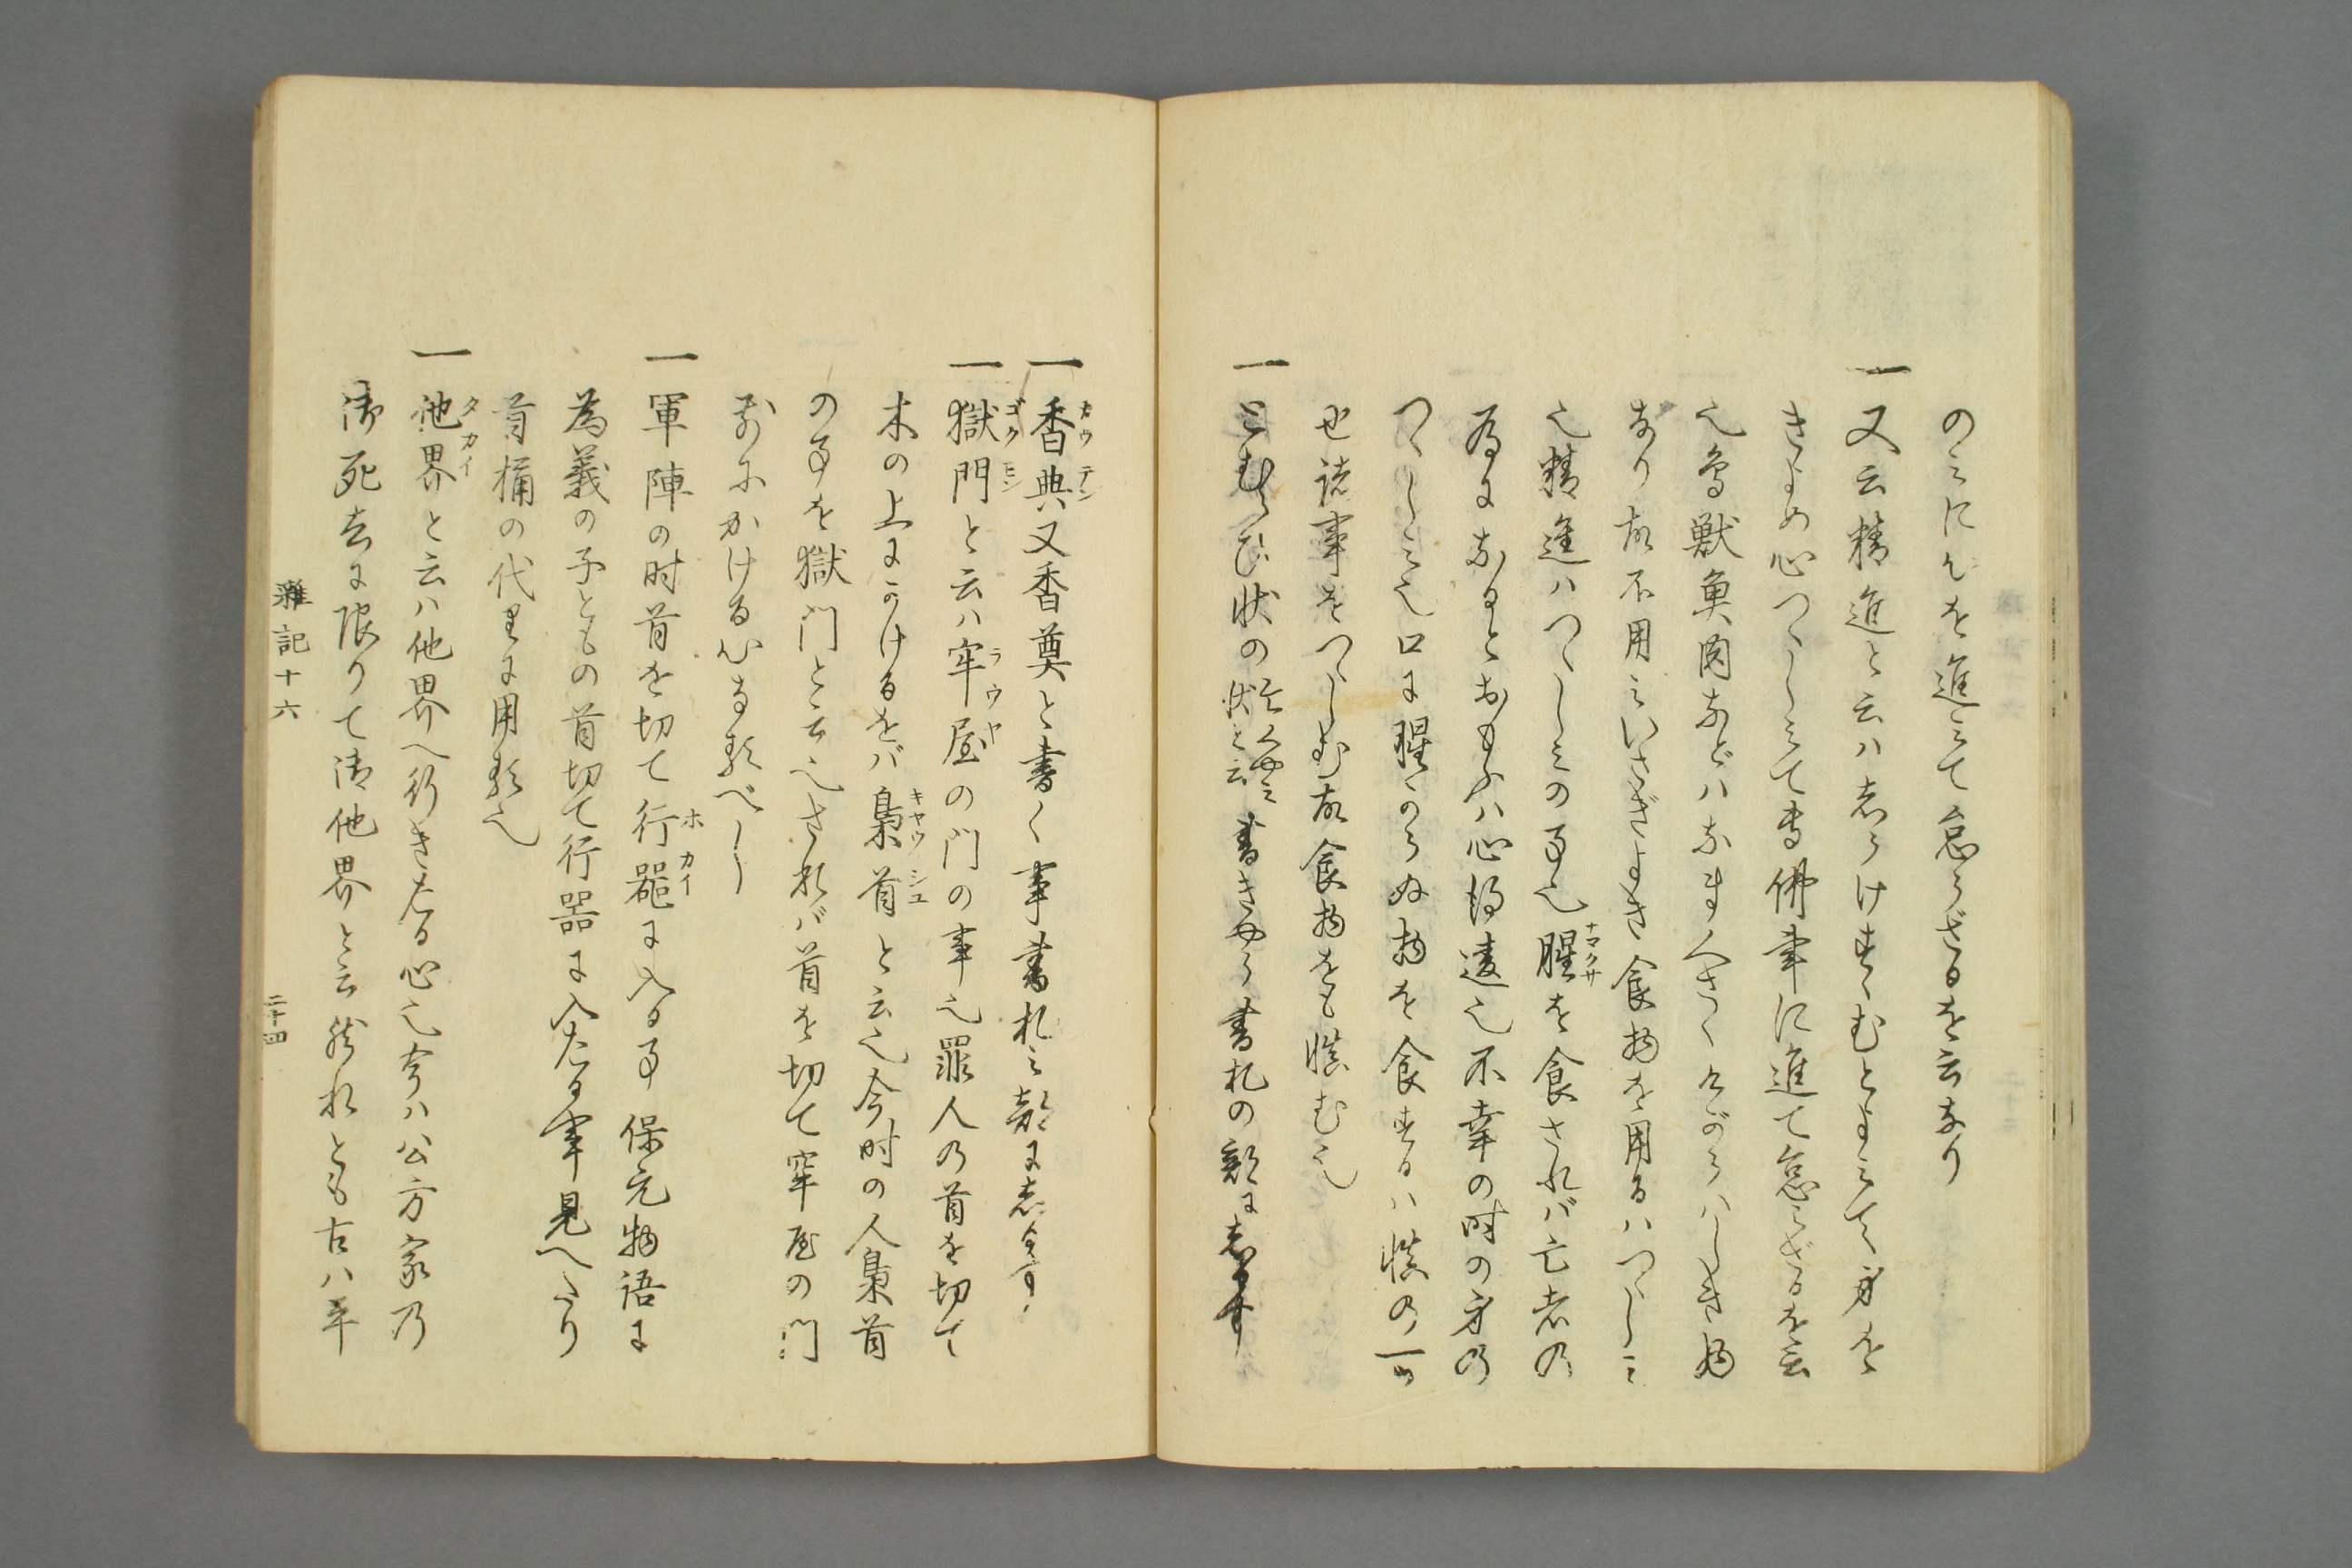 のミにんを進ミて怠らざるを云なり
一又云精進と云ハ志らけすゝむとよミて身を
きよめ心つゝしミて専佛事に進て怠らざるを云
也鳥獣魚肉などハなまくさくけがらハしき物
なり故不用ミいさぎよき食物を用るハつゝしミ
也精進ハつゝしミの事也腥を食されバ亡者の
為になるとおもふハ心得違也不幸の時の身の
つゝしミ也口に腥からぬ物を食するハ慎の一ッ
也諸事をつゝしむ故食物をも慎む也
一とむらひ状の 書きやう書札の部に志るす
一香典又香奠と書く事書札之部に志るす
一獄門と云ハ牢屋の門の事也罪人の首を切て
木の上にかけるをバ梟首と云也今時の人梟首
の事を獄門と云也されバ首を切て牢屋の門
前にかける心なるべし
一軍陣の时首を切て行器に入る事保元物語に
為義の子ともの首切て行器に入たる事見へたり
首桶の代りに用る也
一他界と云ハ他界へ行きたる心也今ハ公方家乃
御死去に限りて御他界と云然れとも古ハ平
雑記十六
二十四